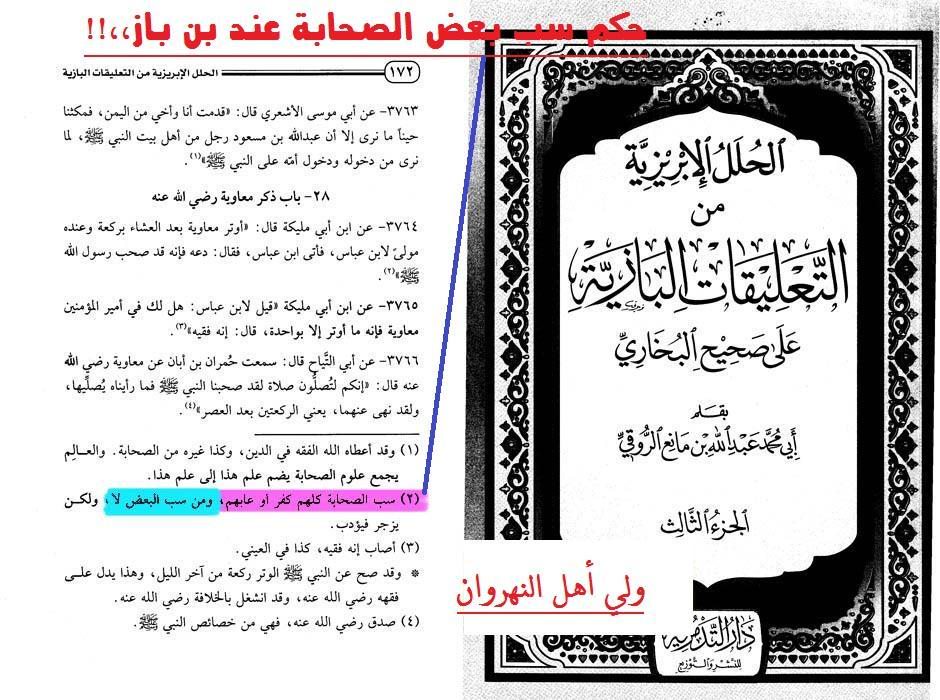 حكم سب بعض الصحابة عند بن باز،،!!
١٧٢ الحلل الإبريزية من التعليقات البازية
٣٧٦٣- عن أبي موسى الأشعري قال: «قدمت أنا وأخي من اليمن، فمكثنا
حيناً ما نرى إلا أن عبدالله بن مسعود رجل من أهل بيت النبي ﷺ، لما
نرى من دخوله ودخول أمّه على النبي ﷺ»(١).
٢٨- باب ذكر معاوية رضي الله عنه
٣٧٦٤- عن ابن أبي مليكة قال: «أوتر معاوية بعد العشاء بركعة وعنده
مولىً لابن عباس، فأتى ابن عباس، فقال: دعه فإنه قد صحب رسول الله
ﷺ»(٢).
٣٧٦٥- عن ابن أبي مليكة «قيل لابن عباس: هل لك في أمير المؤمنين
معاوية فإنه ما أوتر إلا بواحدة، قال: إنه فقيه»(٣).
٣٧٦٦- عن أبي التَّياح قال: سمعت حُمران بن أبان عن معاوية رضي الله
عنه قال: «إنكم لتُصلُّون صلاة لقد صحبنا النبي ﷺ فما رأيناه يُصلِّيها،
ولقد نهى عنهما، يعني الركعتين بعد العصر»(٤).
(١) وقد أعطاه الله الفقه في الدين، وكذا غيره من الصحابة. والعالِم
يجمع علوم الصحابة يضم علم هذا إلى علم هذا.
(٢) سب الصحابة كلهم كفر أو عابهم، ومن سب البعض لا، ولكن
يزجر فيؤدب.
(٣) أصاب إنه فقيه، كذا في العيني.
* وقد صح عن النبي ﷺ الوتر ركعة من آخر الليل، وهذا يدل على
فقهه رضي الله عنه، وقد انشغل بالخلافة رضي الله عنه.
(٤) صدق رضي الله عنه، فهي من خصائص النبي ﷺ.
الحُلَلُ الإِبْرِيزِيَّة
من
التَّعْلِيقَاتِ البَازِيَّة
عَلَى صَحِيحِ البُخَارِيِّ
بقلم
أَبِي مُحَمَّد عَبْدِ اللهِ بْنِ مَانِعِ الرُّوقِيِّ
الجزءُ الثَّالِث
ولي أهل النهروان
دَارُ التَّدْمُرِيَّة
لِلنَّشْرِ وَالتَّوْزِيع